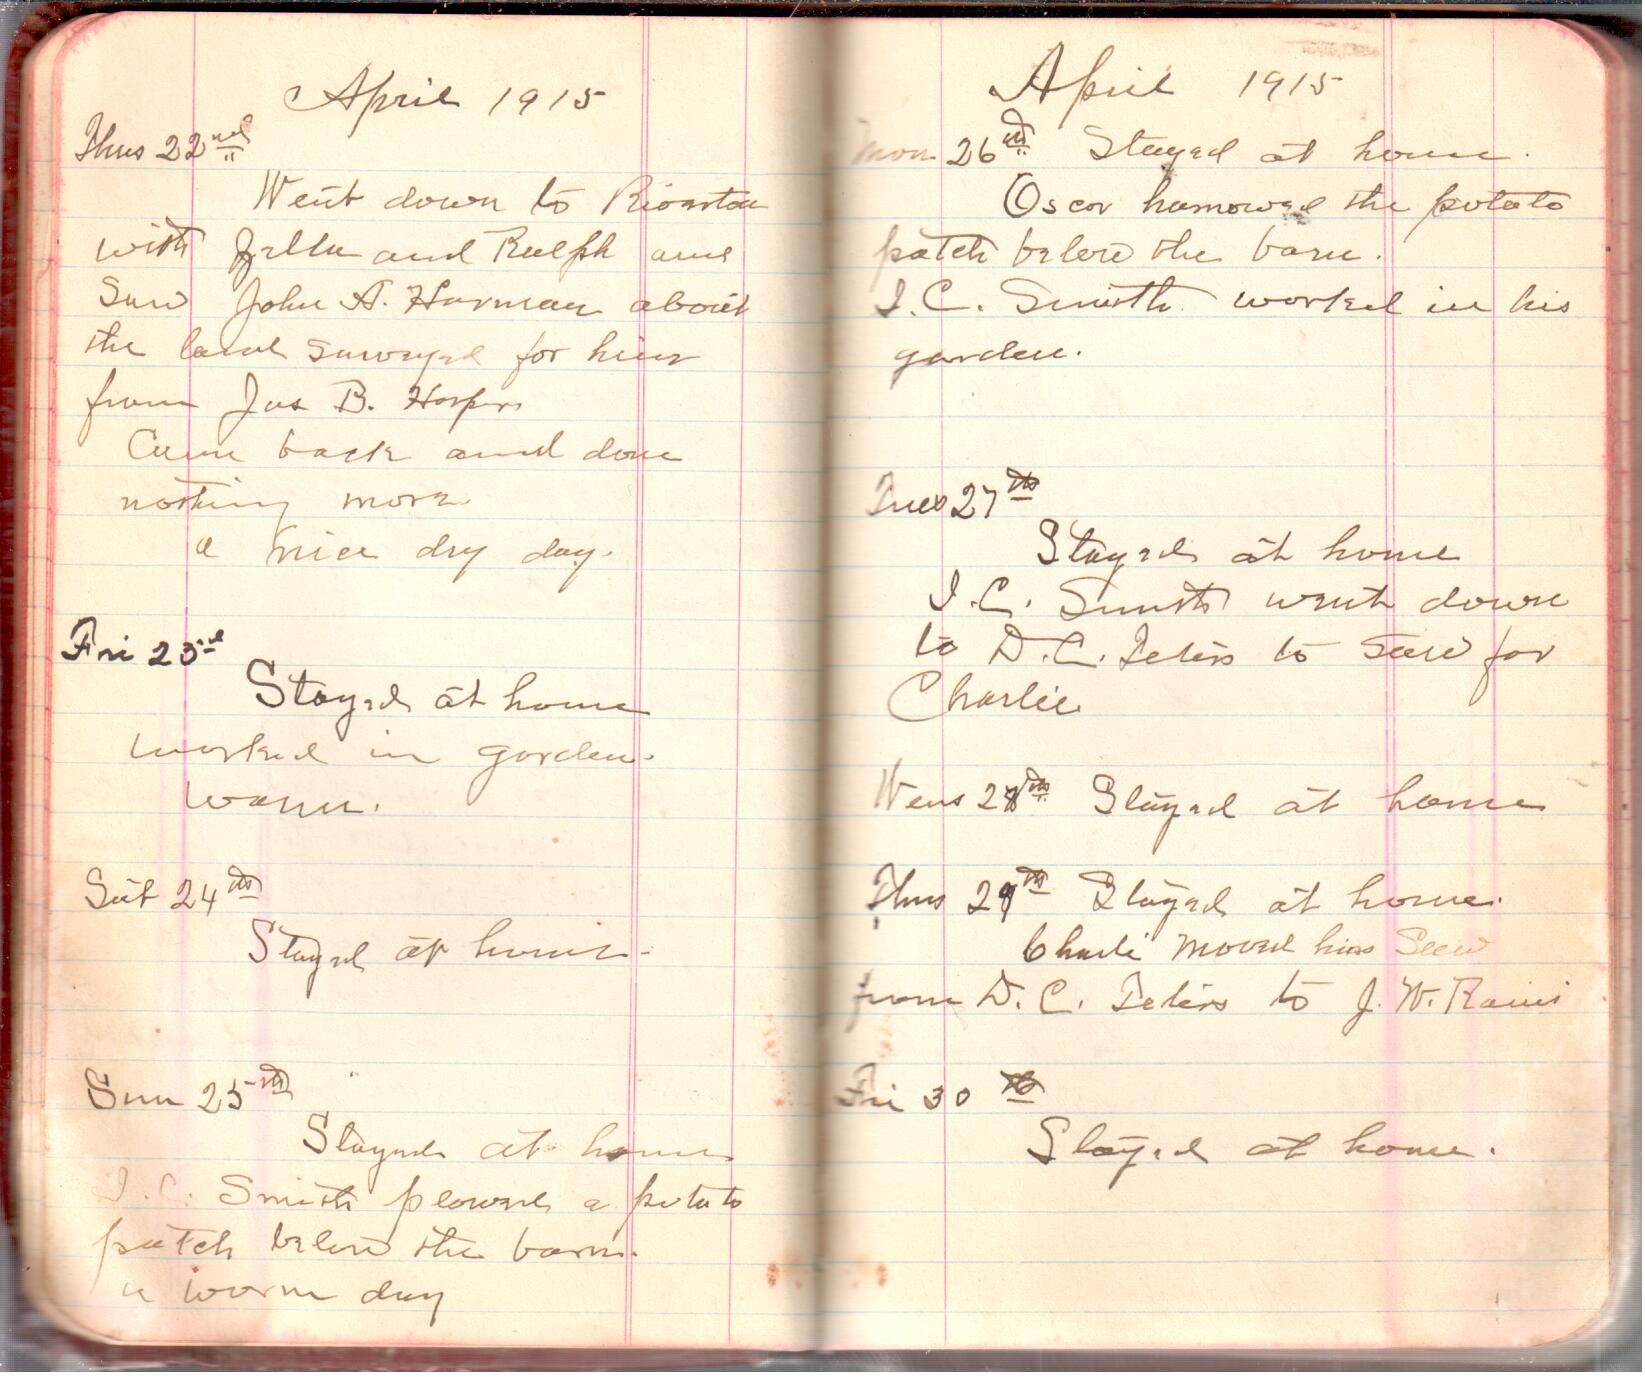 April 1915
Thus 22nd
Went down to Riverton
with Zella and Ralph and
Saw John A. Harman about
the land surveyed for him
from Jas B. Harper
Came back and done
nothing more
a nice dry day.
Fri 23rd
Stayed at home
worked in garden.
warm.
Sat 24th
Stayed at home.
Sun 25th
Stayed at home
I. C. Smith plowed a potato
patch below the barn.
a warm day
April 1915
Mon 26th Stayed at home.
Oscar harrowed the potato
patch below the barn.
I. C. Smith worked in his
garden.
Tues 27th
Stayed at home
I. C. Smith went down
to D. C. Teters to Saw for
Charlie
Wens 28th Stayed at home
Thus 29th Stayed at home.
Charli moved his
from D. C. Teters to J. W.
Fri 30th
Stayed at home.